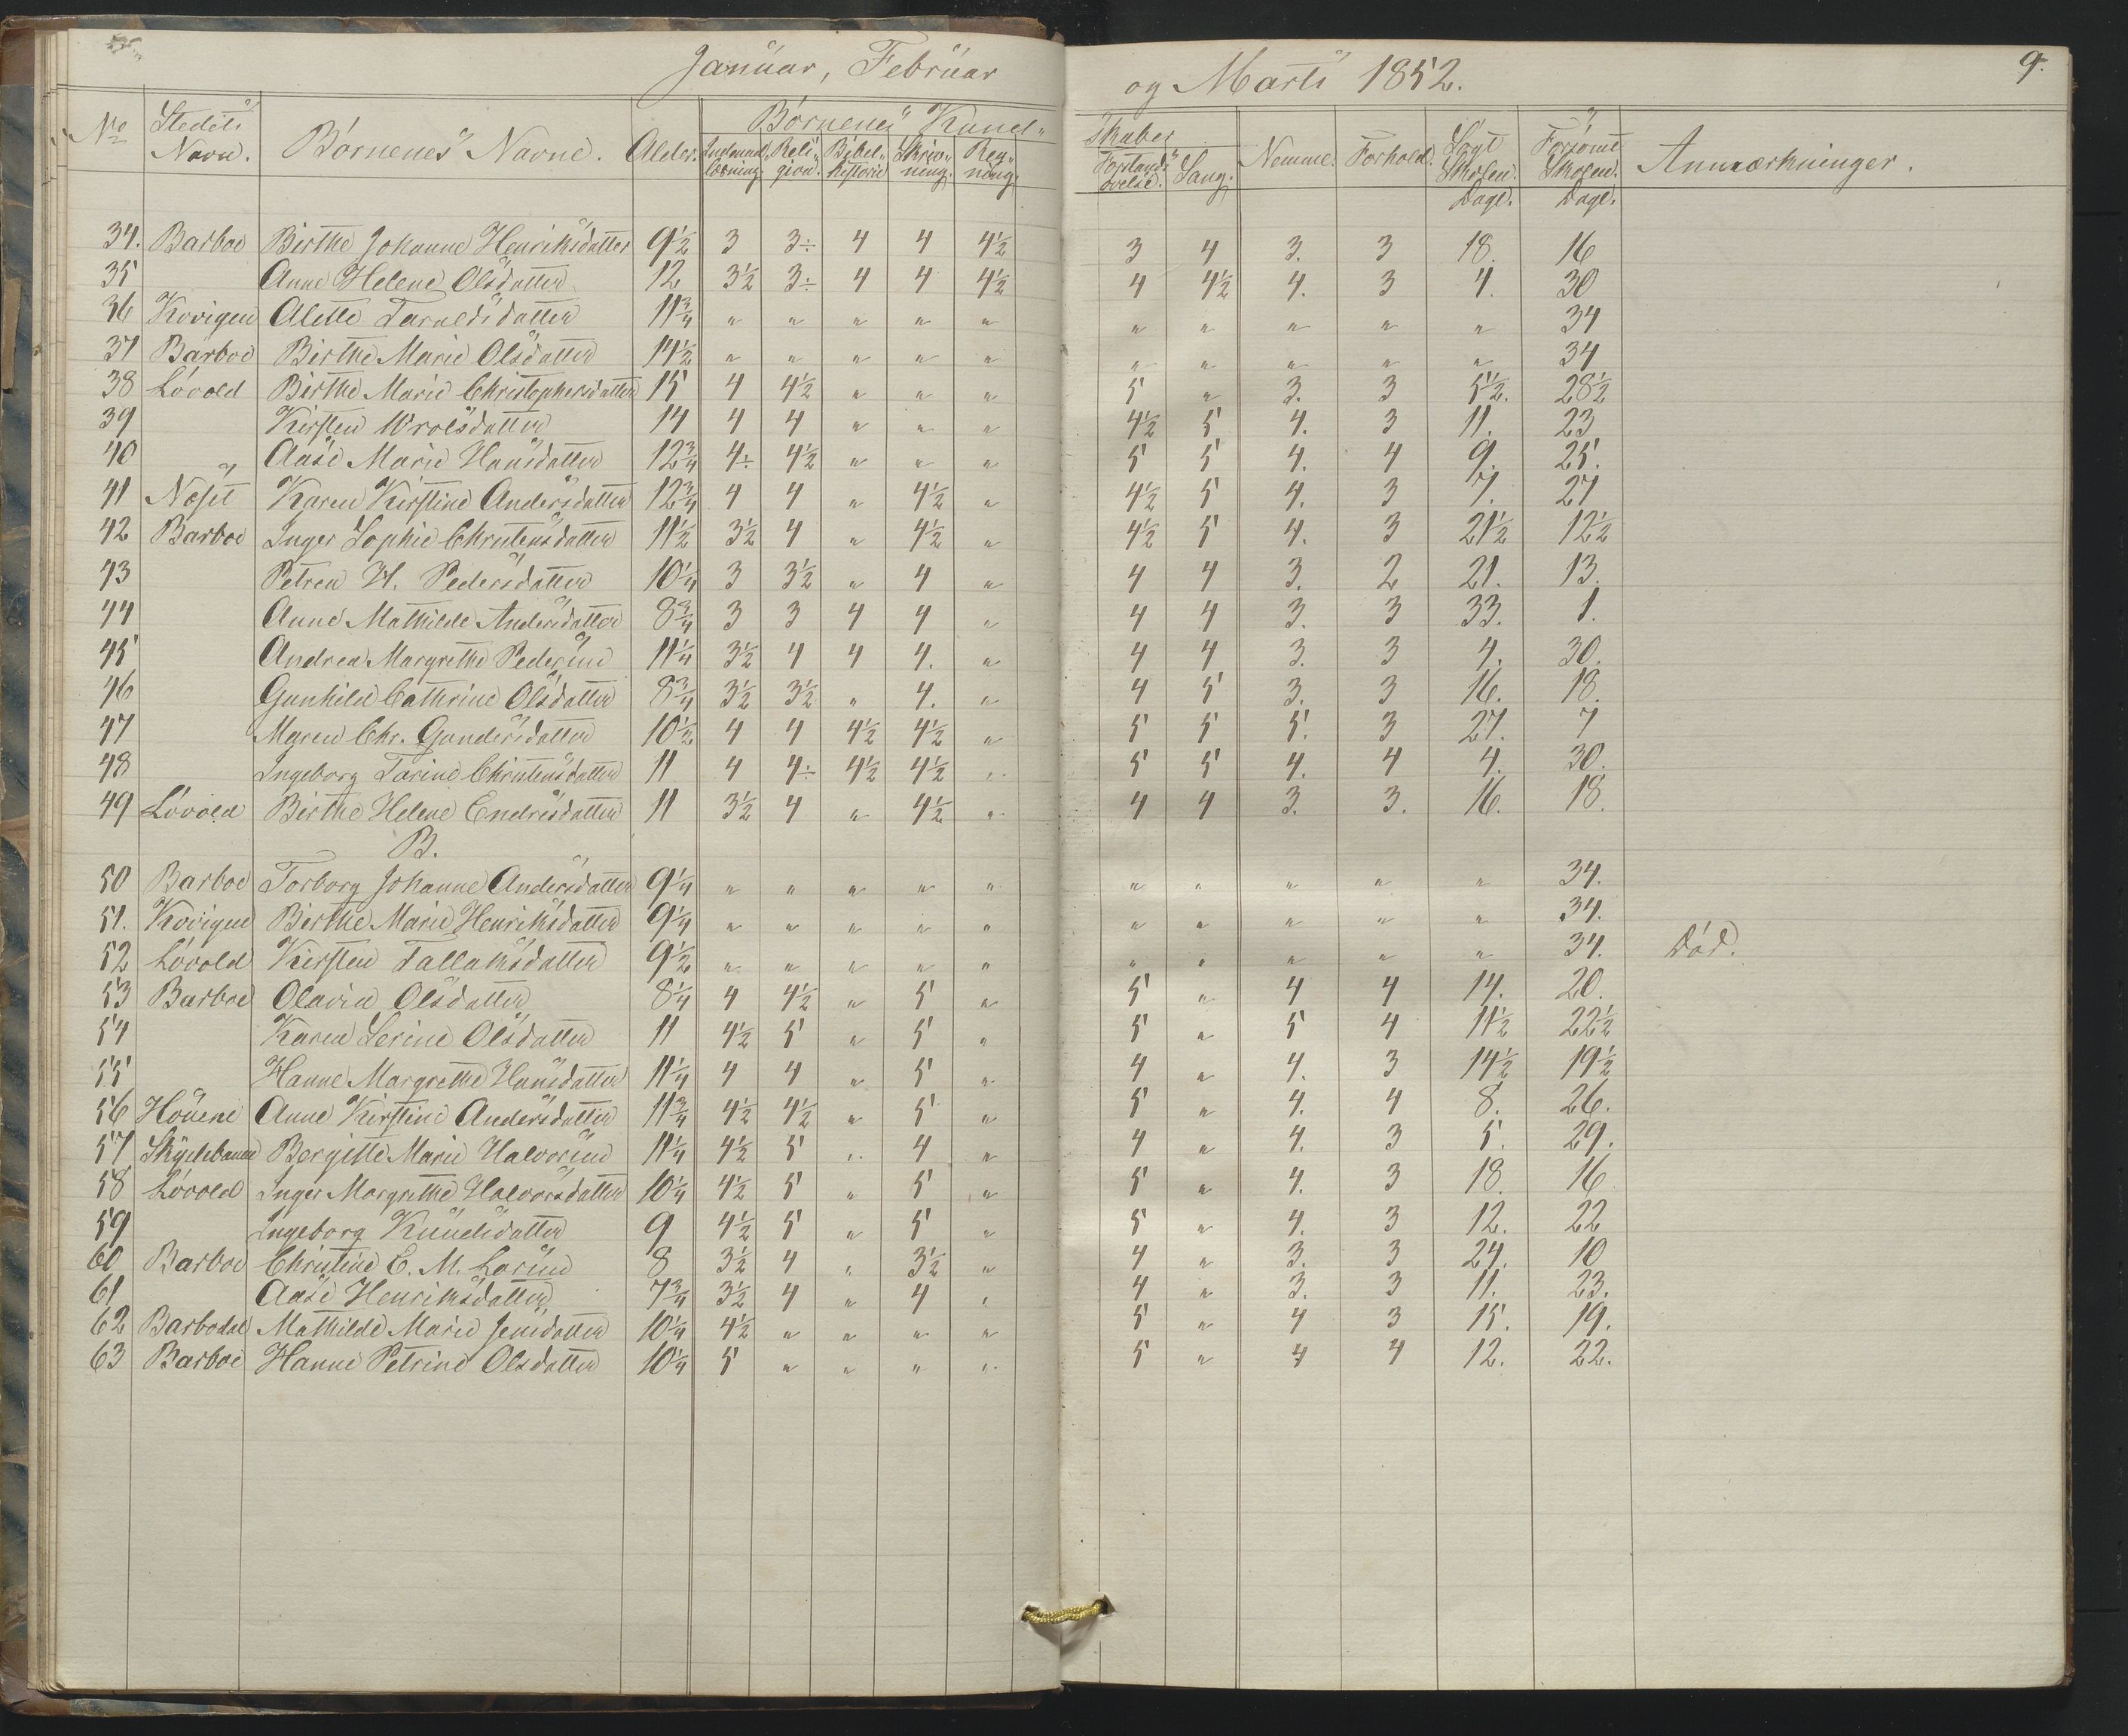 Januar, Februar og Marts 1852. 9.
No Stedets Navn. Børnenes Navne. Alder. Børnenes Kund- skaber Nemme. Forhold. Søgt Skolen. Dage. Forsømt Skolen. Dage. Anmærkninger.
Indenad- læsning. Reli- gion. Bibel- historie Skriv- ning. Reg- ning. Forstands- øvelse. Sang.
34. Barboe Birthe Johanne Henriksdatter 9½ 3 3÷ 4 4 4½ 3 4 3. 3 18. 16
35 Anne Helene Olsdatter 12 3½ 3÷ 4 4 4½ 4 4½ 4. 3 4. 30
36 Kovigen Alette Taraldsdatter 11¾ " " " " " " " " " " 34
37 Barboe Birthe Marie Olsdatter 14½ " " " " " " " " " " 34
38 Løvold Birthe Marie Christophersdatter 15 4 4½ " " " 5 " 3. 3 5½. 28½
39 Kirsten Wrolsdatter 14 4 4 " " " 4½ 5 4. 3 11. 23
40 Aase Marie Hansdatter 12¾ 4÷ 4½ " " " 5 5 4. 4 9. 25.
41 Næset Karen Kirstine Andersdatter 12¾ 4 4 " 4½ " 4½ 5 4. 3 7. 27
42 Barboe Inger Sophie Christensdatter 11½ 3½ 4 " 4½ " 4½ 5 4. 3 21½ 12½
43 Petrea H. Pedersdatter 10¼ 3 3½ " 4 " 4 4 3. 2 21. 13.
44 Anne Mathilde Andersdatter 8¾ 3 3 4 4 " 4 4 3. 3 33. 1.
45 Andrea Margrethe Pedersen 11¼ 3½ 4 4 4. " 4 4 3. 3 4. 30.
46 Gunhild Cathrine Olsdatter 8¾ 3½ 3½ " 4. " 4 5 3. 3 16. 18.
47 Maren Chr. Gundersdatter 10½ 4 4 4½ 4½ " 5 5 5. 3 27. 7
48 Ingeborg Tarine Christensdatter 11 4 4÷ 4½ 4½ " 5 5 4. 4 4. 30.
49 Løvold Birthe Helene Endresdatter 11 3½ 4 " 4½ " 4 4 3. 3. 16. 18.
B.
50 Barboe Torborg Johanne Andersdatter 9¼ " " " " " " " " " " 34.
51. Kovigen Birthe Marie Henriksdatter 9¼ " " " " " " " " " " 34.
52 Løvold Kirsten Tallaksdatter 9½ " " " " " " " " " " 34. Død.
53 Barboe Olavia Olsdatter 8¼ 4 4½ " 5 " 5 " 4 4 14. 20.
54 Karen Serine Olsdatter 11 4½ 5 " 5 " 5 " 5 4 11½ 22½
55 Hanne Margrethe Hansdatter 11¼ 4 4 " 5 " 4 " 4. 3 14½ 19½
56 Houene Anne Kirstine Andersdatter 11¾ 4½ 4½ " 5 " 5 " 4. 4 8. 26.
57 Skydebanen Bergitte Marie Halvorsen 11¼ 4½ 5 " 4 " 4 " 4. 3 5. 29.
58 Løvold Inger Margrethe Halvorsdatter 10¼ 4½ 5 " 5 " 5 " 4. 3 18. 16
59 Ingeborg Knudsdatter 9 4½ 5 " 5 " 5 " 4. 3 12. 22
60 Barboe Christine C. M. Larsen 8 3½ 4 " 3½ " 4 " 3. 3 24. 10
61 Aase Henriksdatter 7¾ 3½ 4 " 4 " 4 " 3. 3 11. 23.
62 Barbodal Mathilde Marie Jensdatter 10¼ 4½ " " " " 5 " 4 3 15. 19.
63 Barboe Hanne Petrine Olsdatter 10¼ 5 " " " " 5 " 4 4 12. 22.